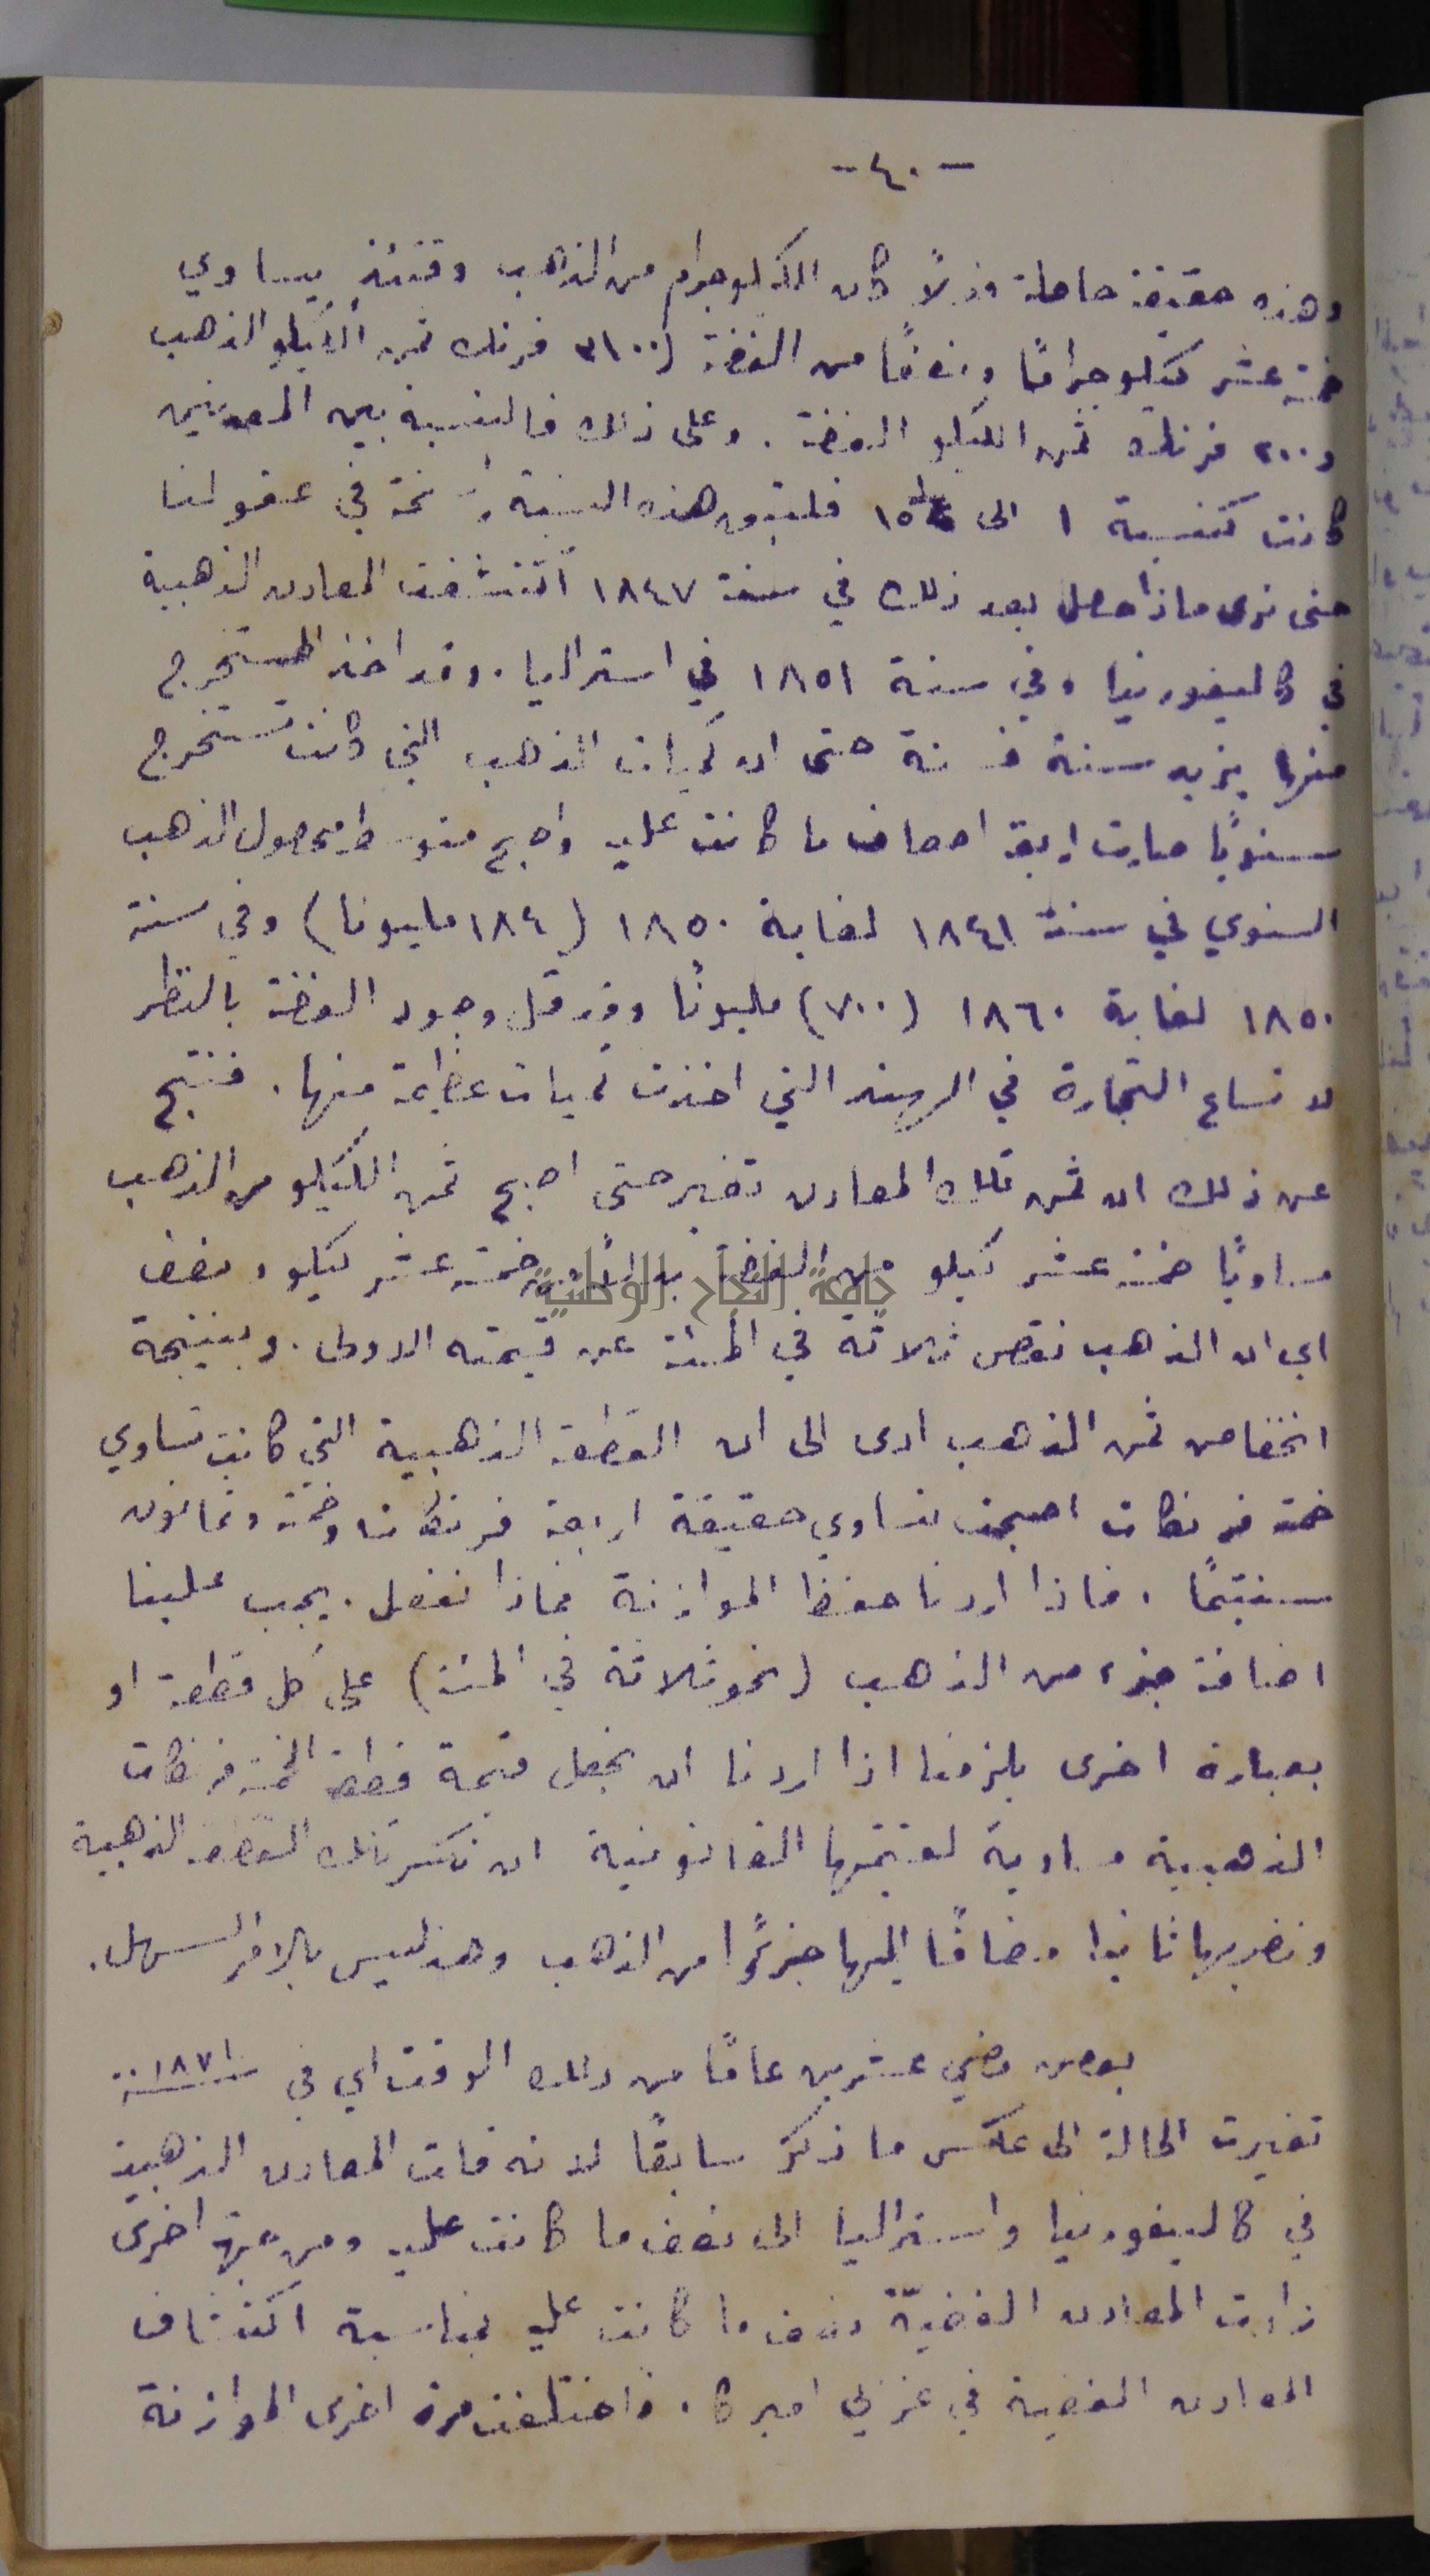 - ٤٠ -
وهذه حقيقة حاصلة فمثلاً كان الكيلوجرام من الذهب وقتئذ يساوي
خمسة عشر كيلوجرامًا ونصفًا من الفضة (٣١٠٠ فرنك ثمن الكيلو الذهب
و ٢٠٠ فرنك ثمن الكيلو الفضة . وعلى ذلك فالنسبة بين المعدنين
كانت كنسبة ١ الى ١٥ فلتبق هذه النسبة راسخة في عقولنا
حتى نرى ماذا حصل بعد ذلك في سنة ١٨٤٧ اكتشفت المعادن الذهبية
في كاليفورنيا وفي سنة ١٨٥١ في استراليا . وقد اخذ المستخرج
منها يزيد سنة فسنة حتى ان كميات الذهب التي كانت تستخرج
سنويًا صارت اربعة اضعاف ما كانت عليه واصبح متوسط محصول الذهب
السنوي في سنة ١٨٤١ لغاية ١٨٥٠ (١٨٤ مليونا) وفي سنة
١٨٥٠ لغاية ١٨٦٠ (٧٠٠) مليونًا وقد قل وجود الفضة بالنظر
لاتساع التجارة في الهند التي اخذت كميات عظيمة منها . فنتج
عن ذلك ان ثمن تلك المعادن تغير حتى اصبح ثمن الكيلو من الذهب
مساويًا خمسة عشر كيلو من الفضة بدلاً من خمسة عشر كيلو ونصف
اي ان الذهب نقص ثلاثة في المئة عن قيمته الاولى . وبنتيجة
انخفاض ثمن الذهب ادى الى ان القطعة الذهبية التي كانت تساوي
خمسة فرنكات اصبحت تساوي حقيقة اربعة فرنكات وخمسة وثمانون
سنتيمًا . فاذا اردنا حفظ الموازنة فماذا نفعل . يجب علينا
اضافة جزء من الذهب (نحو ثلاثة في المئة) على كل قطعة او
بعبارة اخرى يلزمنا اذا اردنا ان نجعل قيمة قطعة الخمسة فرنكات
الذهبية مساوية لقيمتها القانونية ان نكسر تلك القطعة الذهبية
ونضربها ثانيا مضافًا اليها جزئًا من الذهب وهذا ليس بالامر السهل .
بعد مضي عشرين عامًا من ذلك الوقت اي في سنة ١٨٧١
تغيرت الحالة الى عكس ما ذكر سابقًا لانه قلت المعادن الذهبية
في كاليفورنيا واستراليا الى نصف ما كانت عليه ومن جهة اخرى
زادت المعادن الفضيّة ضعف ما كانت عليه بمناسبة اكتشاف
المعادن الفضية في غربي اميركا . فاختلفت مرة اخرى الموازنة
جامعة النجاح الوطنية